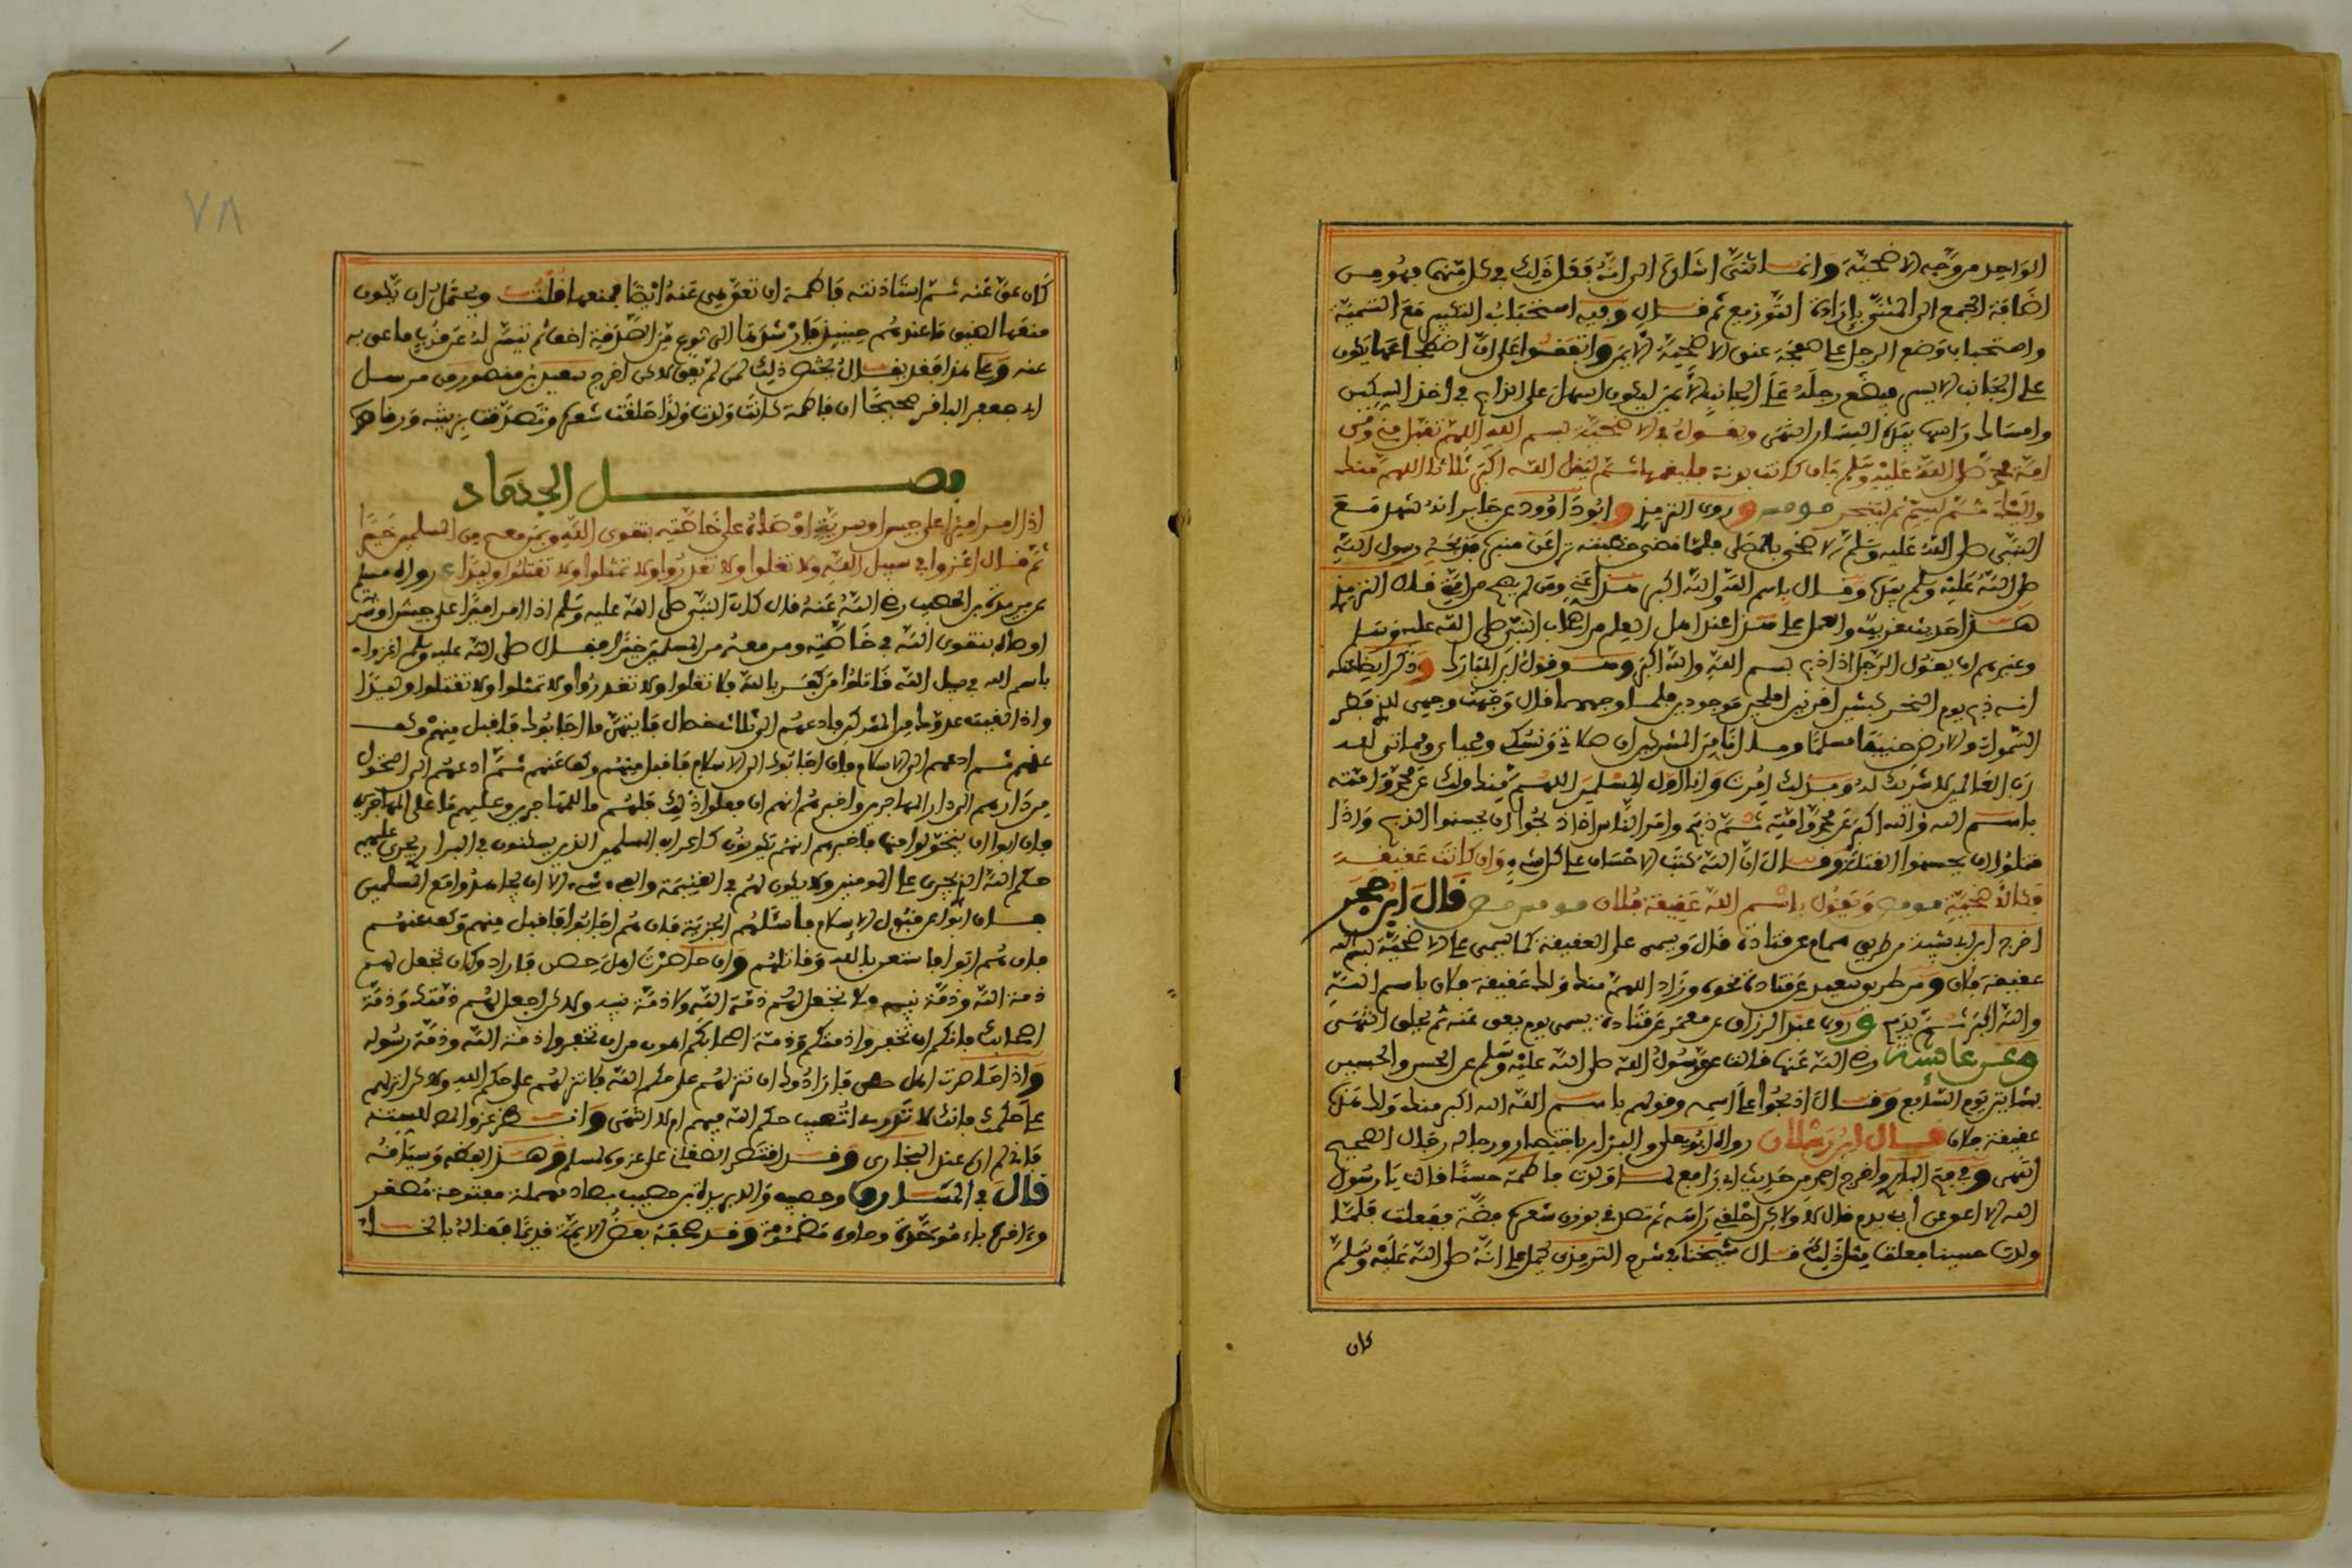 الواحد من وجه الاضحية وانما ثنى اشارة الى انه فعل ذلك في كل منهما فهو من
اضافة الجمع الى المثنى بارادة التوزيع ثم قال وفيه استحباب التكبير مع التسمية
واستحباب وضع الرجل على صفحة عنق الاضحية الايمن واتفقوا على ان اضجاعها يكون
على الجانب الايسر فيضع رجله على الجانب الايمن ليكون اسهل على الذابح في اخذ السكين
وامساك راسها بيده اليسار انتهى ويقول في الاضحية بسم الله اللهم تقبل مني ومن
امة محمد صلى الله عليه وسلم فان كانت بدنة فليقمها ثم ليقل الله اكبر ثلاثا اللهم منك
واليك ثم ليسم ثم لينحر وروى الترمذي وابو داوود عن جابر انه شهد مع
النبي صلى الله عليه وسلم الاضحى بالمصلى فلما قضى خطبته نزل عن منبره فذبحه رسول الله
صلى الله عليه وسلم بيده وقال باسم الله والله اكبر هذا عني وعن لم يضح من امتي قال الترمذي
هذا حديث غريب والعمل على هذا عند اهل العلم من اصحاب النبي صلى الله عليه وسلم
وغيرهم ان يقول الرجل اذا ذبح بسم الله والله اكبر وهو قول ابن المبارك وذكر ايضا عنه
انه ذبح يوم النحر كبشين اقرنين املحين موجودين فلما وجههما قال وجهت وجهي للذي فطر
السموات والارض حنيفا مسلما وما انا من المشركين ان صلاتي ونسكي ومحياي ومماتي لله
رب العالمين لا شريك له وبذلك امرت وانا اول المسلمين اللهم منك ولك عن محمد وامته
باسم الله والله اكبر عن محمد وامته ثم ذبح وامر الناس اذا ذبحوا ان يحسنوا الذبح واذا
قتلوا ان يحسنوا القتلة وقال ان الله كتب الاحسان على كل شيء وان كانت عقيقة
فكالاضحية ويقول باسم الله عقيقة فلان قال ابن حجر
اخرج ابن ابي شيبة من طريق هشام عن قتادة قال ويسمي على العقيقة كما يسمي على الاضحية بسم الله
عقيقة فلان ومن طريق سعيد عن قتادة نحوه وزاد اللهم منك ولك عقيقة فلان باسم الله
والله اكبر ثم يذبح وروى عبد الرزاق عن معمر عن قتادة يسمي يوم يعق عنه ثم يحلق انتهى
وعن عائشة رضي الله عنها قالت عق رسول الله صلى الله عليه وسلم عن الحسن والحسين
بشاتين يوم السابع وقال اذبحوا على اسمه وقولوا باسم الله الله اكبر منك ولك هذه
عقيقة فلان قال ابن رسلان رواه ابو يعلى والبزار باختصار ورجاله رجال الصحيح
انتهى واخرج احمد من حديث ابي رافع لما ولدت فاطمة حسنا قالت يا رسول
الله الا اعق عن ابني بدم قال لا ولاكن احلقي راسه ثم تصدقي بوزن شعره فضة ففعلت فلما
ولدت حسينا فعلت مثل ذلك قال شيخنا في شرح الترمذي يحمل على انه صلى الله عليه وسلم
كان
٧٨
كان عق عنه ثم استاذنته فاطمة ان تعق هي عنه ايضا فمنعها قلت ويحتمل ان تكون
منعها لضيق ما عندهم حينئذ فارشدها الى نوع من الصدقة اخف ثم تيسر له عن قرب ما عق به
عنه وعلى هذا فقد يقال يختص ذلك بمن لم يعق لاكن اخرج سعيد بن منصور من مرسل
ابي جعفر الباقر صحيحا ان فاطمة كانت اذا ولدت ولدا حلقت شعره وتصدقت بزنته ورقا
فصل الجهاد
اذا امر اميرا على جيش او سرية اوصاه على خاصته بتقوى الله وبمن معه من المسلمين خيرا
ثم قال اغزوا في سبيل الله ولا تغلوا ولا تغدروا ولا تمثلوا ولا تقتلوا وليدا رواه مسلم
عن بريدة بن الحصيب رضي الله عنه قال كان النبي صلى الله عليه وسلم اذا امر اميرا على جيش او سرية
اوصاه بتقوى الله في خاصته ومن معه من المسلمين خيرا فقال صلى الله عليه وسلم اغزوا
باسم الله في سبيل الله قاتلوا من كفر بالله ولا تغلوا ولا تغدروا ولا تمثلوا ولا تقتلوا وليدا
واذا لقيت عدوك من المشركين فادعهم الى ثلاث خصال فايتهن ما اجابوك فاقبل منهم وكف
عنهم ثم ادعهم الى الاسلام فان اجابوك الى الاسلام فاقبل منهم وكف عنهم ثم ادعهم الى التحول
من دارهم الى دار المهاجرين واخبرهم انهم ان فعلوا ذلك فلهم ما للمهاجرين وعليهم ما على المهاجرين
فان ابوا ان يتحولوا منها فاخبرهم انهم يكونون كاعراب المسلمين الذين يسكنون في البراري يجري عليهم
حكم الله الذي يجري على المومنين ولا يكون لهم في الغنيمة والفيء شيء الا ان يجاهدوا مع المسلمين
فان ابوا عن قبول الاسلام فاسئلهم الجزية فان هم اجابوا فاقبل منهم وكف عنهم
فان هم ابوا فاستعن بالله وقاتلهم وان حاصرت اهل حصن فاراد وكان تجعل لهم
ذمة الله وذمة نبيه ولا تجعل لهم ذمة الله ولا ذمة نبيه ولاكن اجعل لهم ذمتك وذمة
اصحابك فانكم ان تخفروا ذمتكم وذمة اصحابكم اهون من ان تخفروا ذمة الله وذمة رسوله
واذا حاصرت اهل حصن فارادوك ان تنزلهم على حكم الله فلا تنزلهم على حكم الله ولاكن انزلهم
على حكمك فانك لا تدري اتصيب حكم الله فيهم ام لا انتهى
قال في المشارق وحصيب والد بريدة بن حصيب بصاد مهملة مفتوحة مصغر
وءاخره باء موحدة وحاؤه مضمومة وقد صحفه بعض الايمة قديما فقاله بالخاء